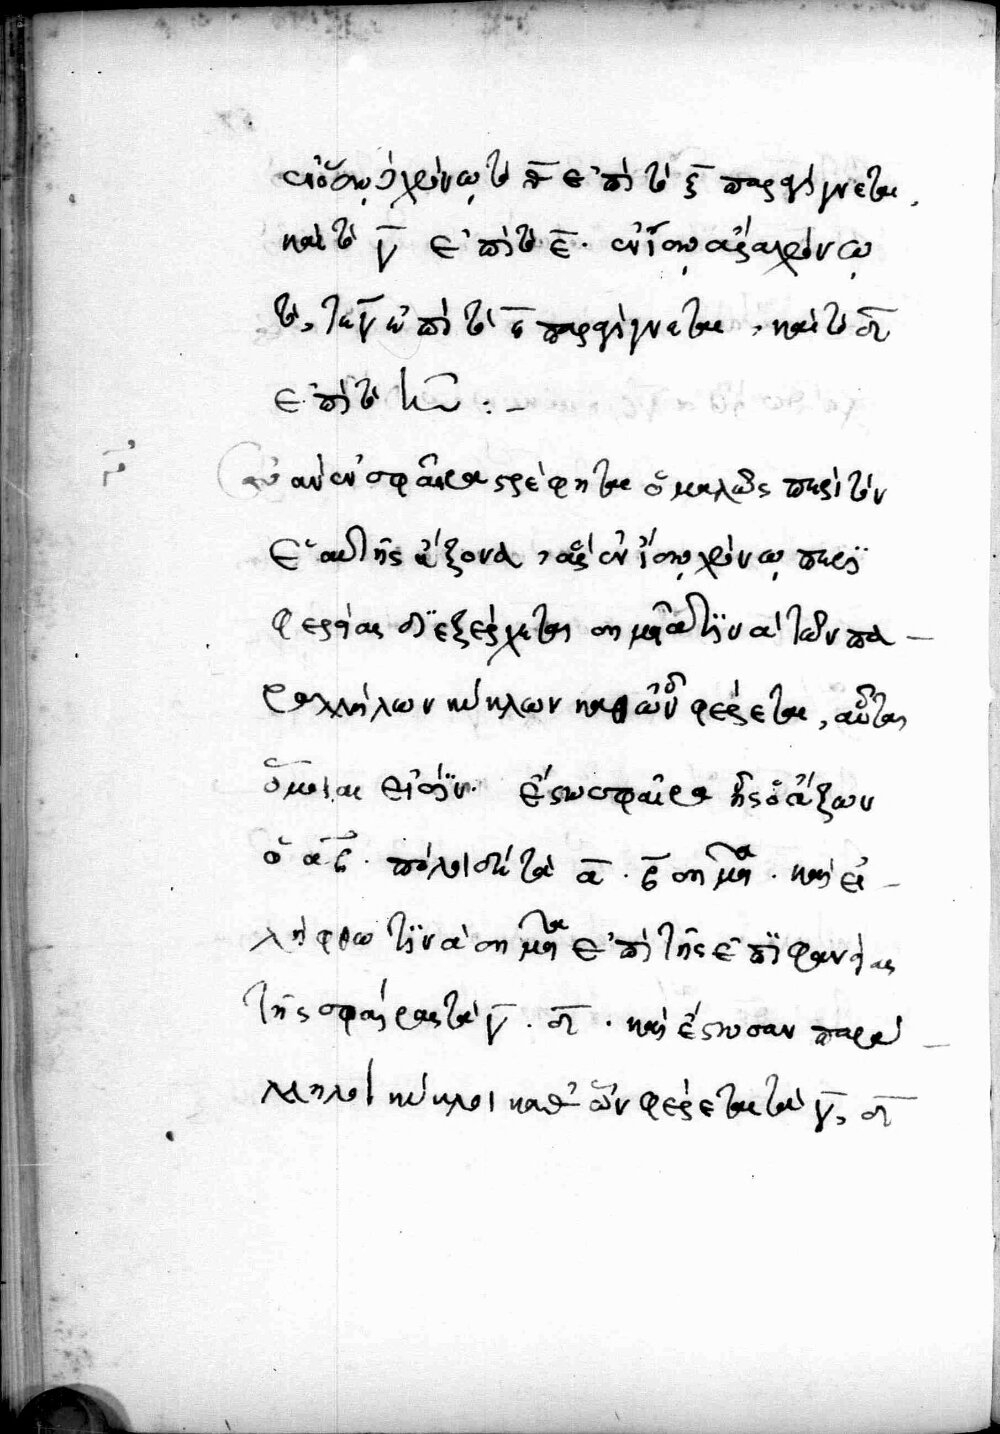 ἐν ὅσῳ χρόνῳ τὸ π̅ ἐπὶ τὸ ξ̅ παραγίγνεται,
καὶ τὸ γ̅ ἐπὶ τὸ ε̅. ἐν ἴσῳ ἄρα χρόνῳ
τό, τε γ̅ ἐπὶ τὸ παραγίγνεται, καὶ τὸ δ̅
ἐπὶ τὸ :-
ἐὰν ἐν σφαῖρα στρέφηται ὁμαλῶς περὶ τὸν
ἑαυτῆς ἄξονα, ἃς ἐν ἴσῳ χρόνῳ περϊ
φερείας διεξέρχεται σημεῖα τινὰ τῶν πα-
ραλλήλων κύκλων καθ' ὧν φέρεται, αὗται
ὅμοιαι εἰσίν. ἔστω σφαῖρα ἧς ὁ ἄξων
ὁ α̅β̅. πόλοι δὲ τὰ α̅. β̅ σημεῖα. καὶ εἰ-
λήφθω τινὰ σημεῖα ἐπὶ τῆς ἐπιφανείας
τῆς σφαίρας τὰ γ̅. δ̅. καὶ ἔστωσαν παρά-
λληλοι κύκλοι καθ' ὧν φέρεται τὰ γ̅, δ̅